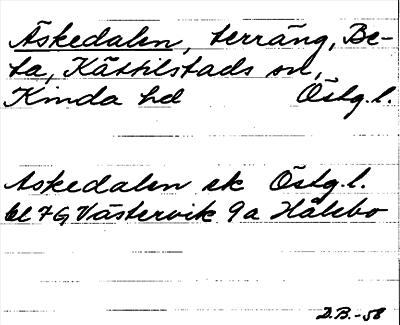 Äskedalen, terräng, Be-
ta, Kättilstads sn,
Kinda hd Östg.l.
Askedalen ek Östg.l.
bl 7G Västervik 9a Hålebo
D.B.-58